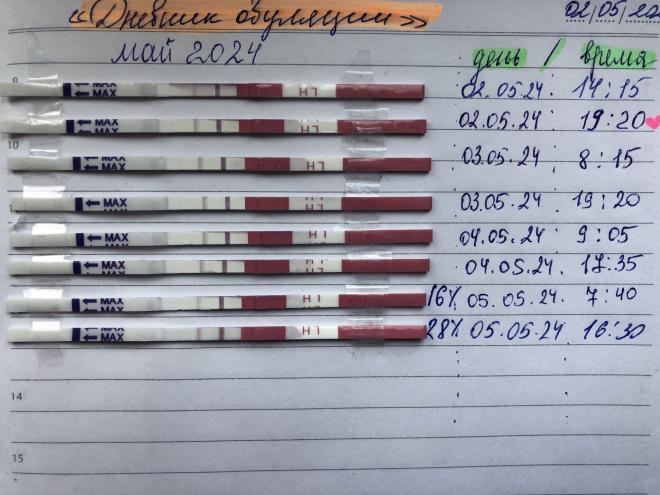 «Дневник овуляции» 02/05/20
май 2024 день / время
9
MAX MAX LH 02.05.24 14:15
MAX MAX LH 02.05.24 19:20
10
MAX LH 03.05.24 8:15
MAX LH 03.05.24 19:20
MAX LH 04.05.24 9:05
MAX LH 04.05.24 17:35
MAX LH 16% 05.05.24 7:40
MAX LH 28% 05.05.24 16:30
14
15